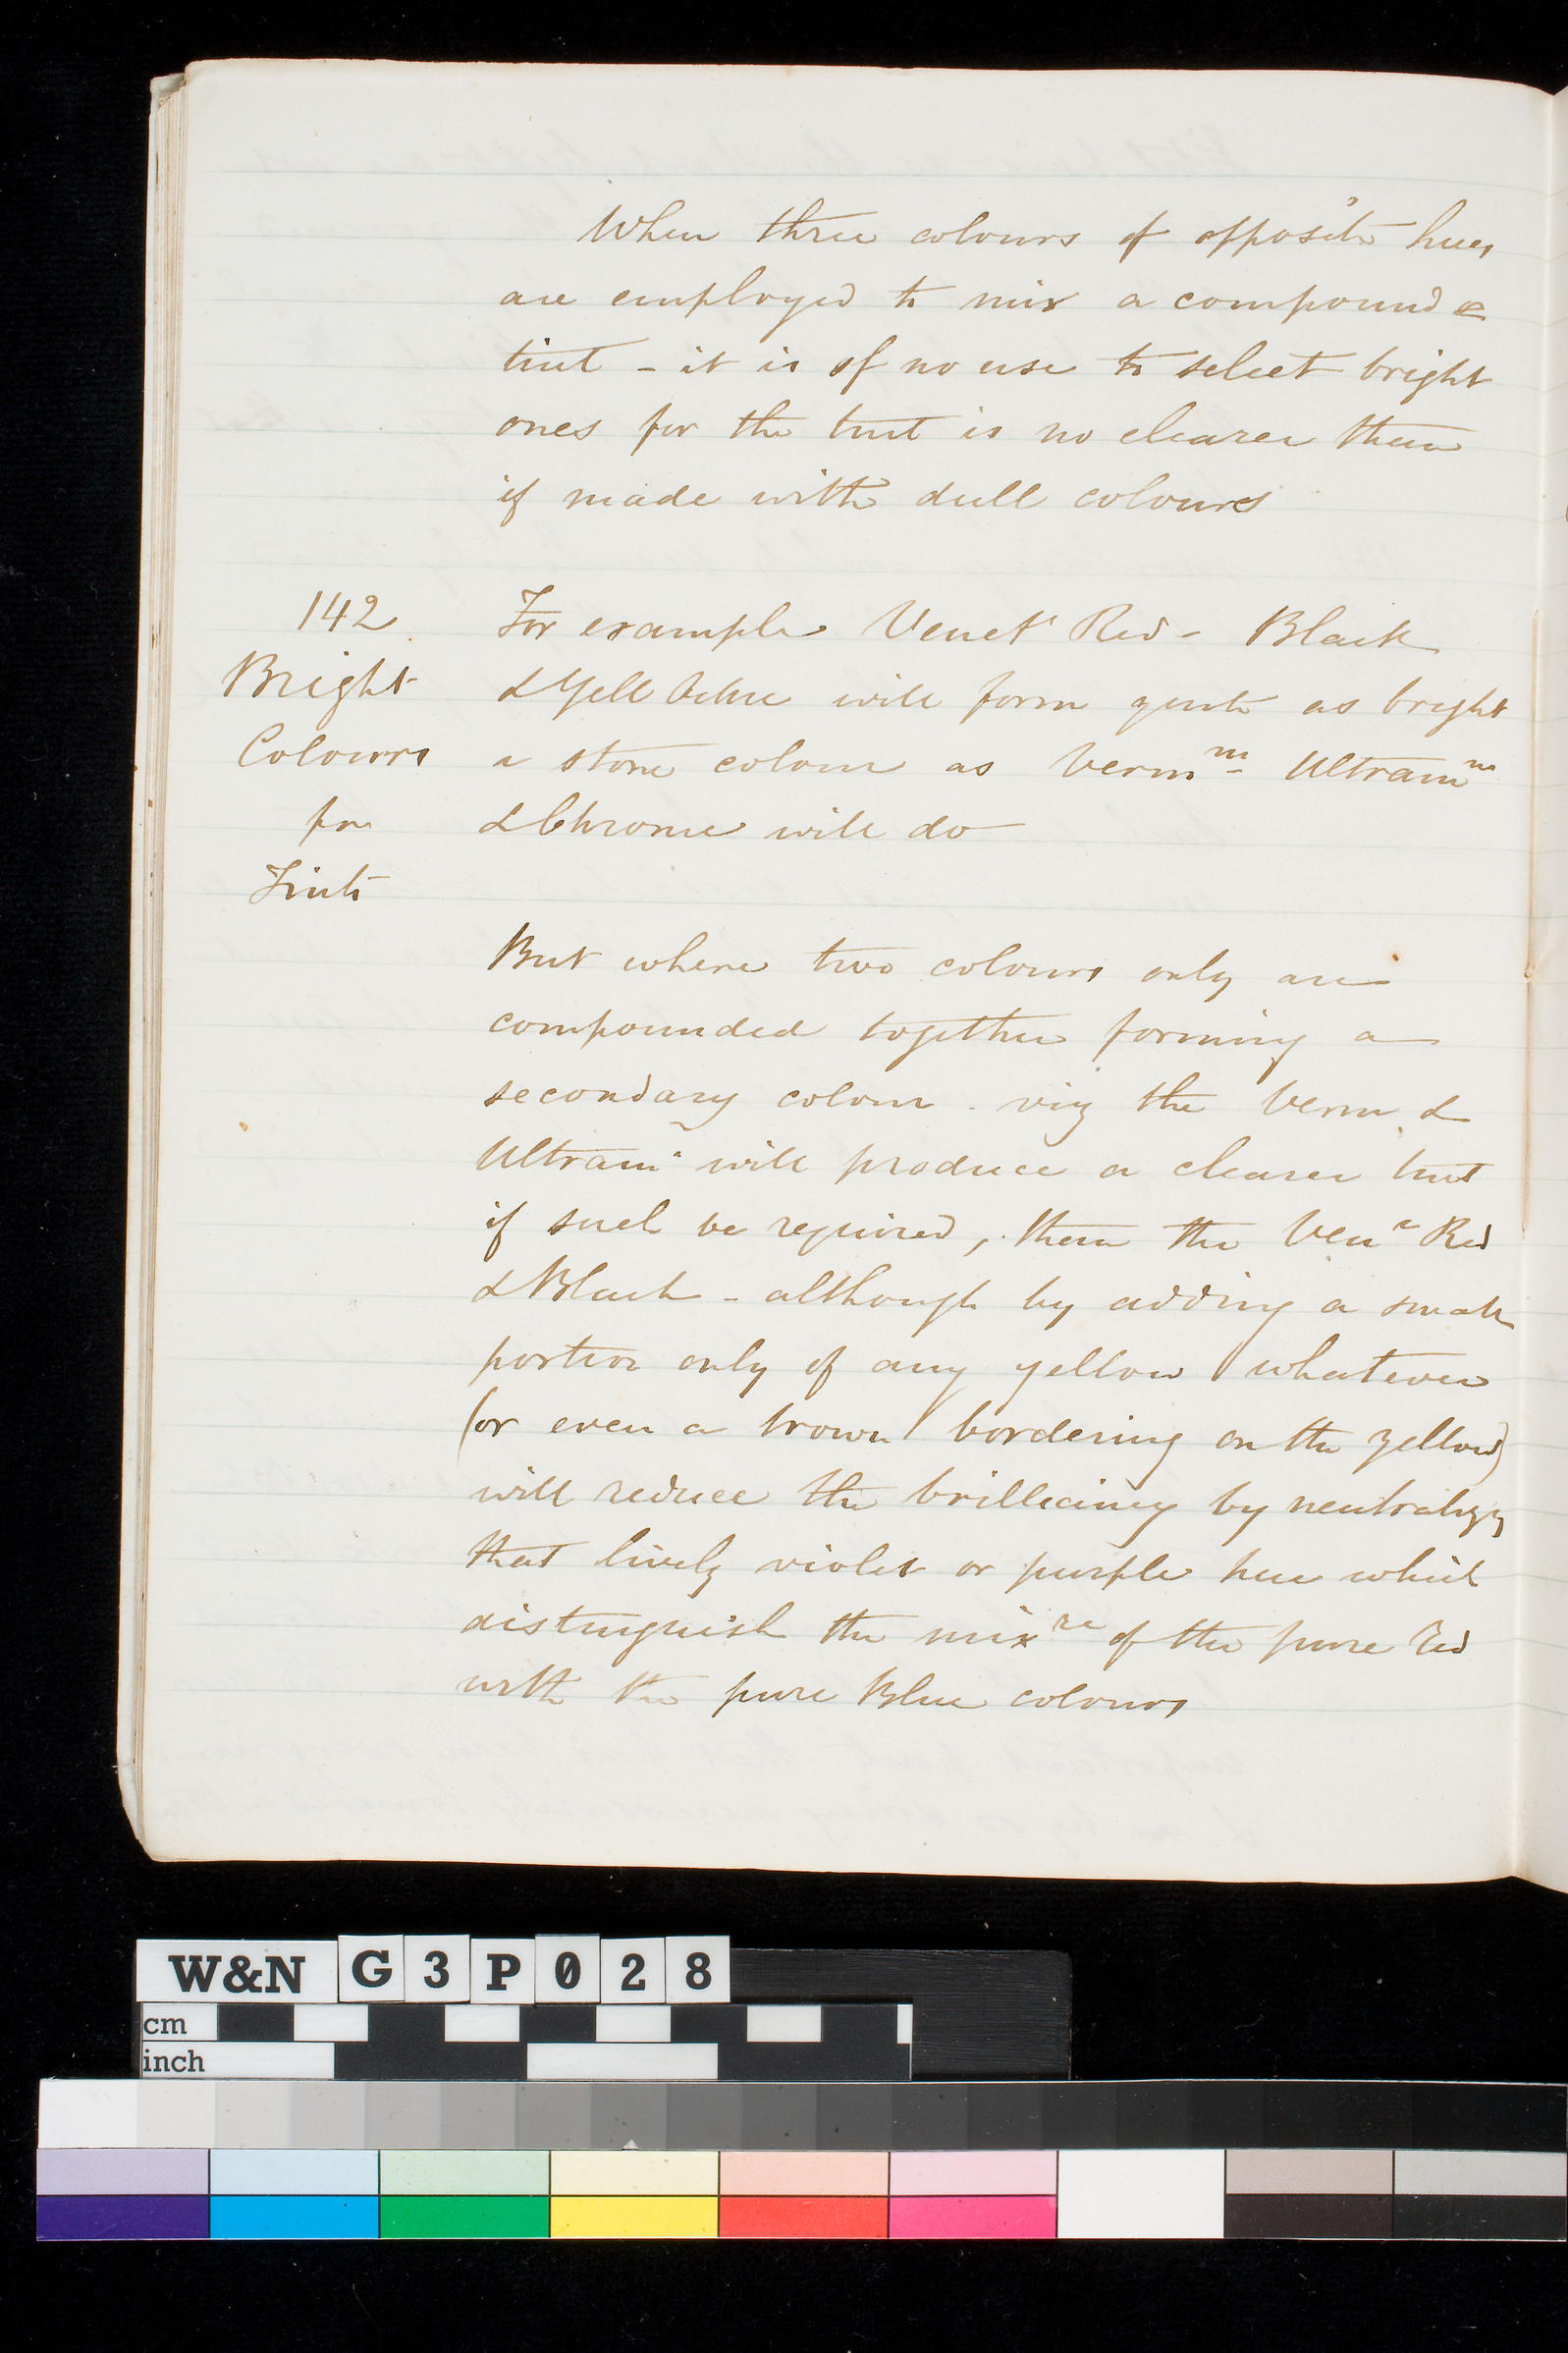 When three colours of opposite hues
are employed to mix a compound
tint - it is of no use to select bright
ones for the tint is no clearer than
if made with dull colours
142
Bright
Colours
for
Tints
For example Venet Red - Black
& Yell Ochre will form quite as bright
a stone colour as Verm^m Ultram^ne
& Chrome will do
But where two colours only are
compounded together forming a
secondary colour - viz the Verm &
Ultram will produce a clearer tint
if such be required, than the Ven^n Red
& Black - although by adding a small
portion only of any yellow whatever
(or even a brown bordering on the yellow)
will reduce the brilliancy by neutralizg
that lively violet or purple hue which
distinguish the mix^re of the pure red
with the pure Blue colours
W&N G3P028
cm
inch